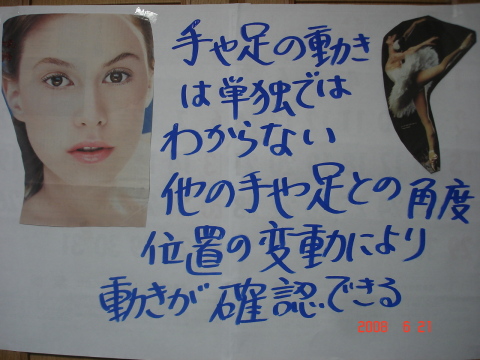 手や足の動き
は単独では
わからない
他の手や足との角度
位置の変動により
動きが確認できる
2008 6 21